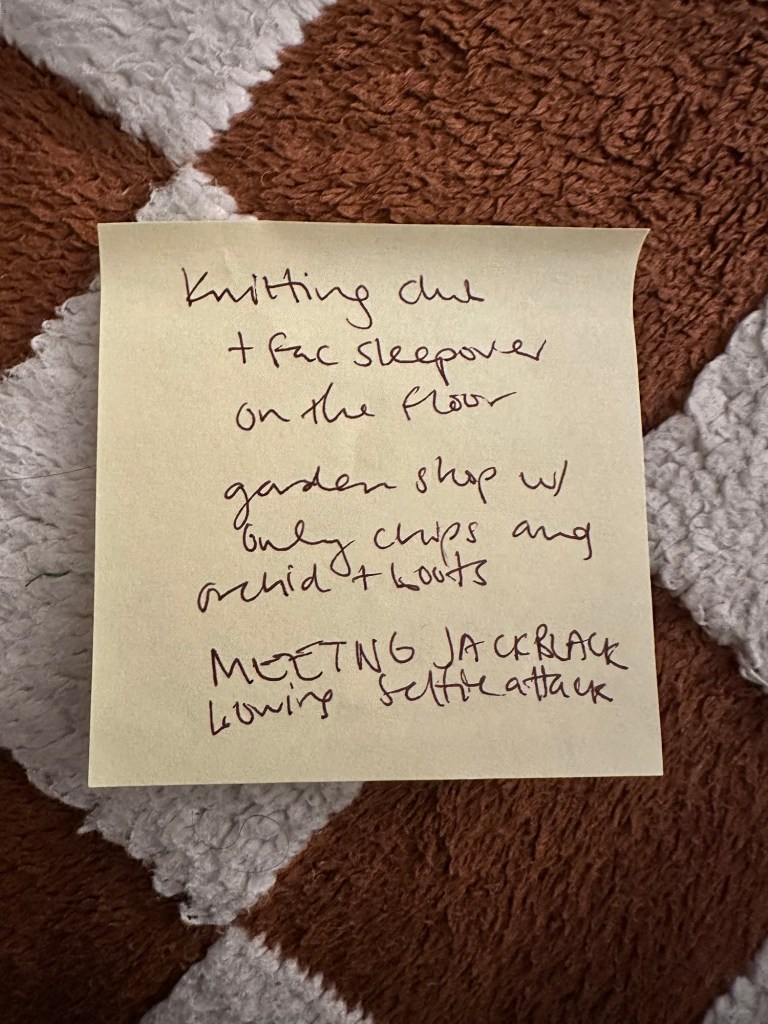 Knitting
+ fac sleepover
on the floor
garden shop w/
only chips and
orchid + boots
MEETNG JACK BLACK
selfie attack